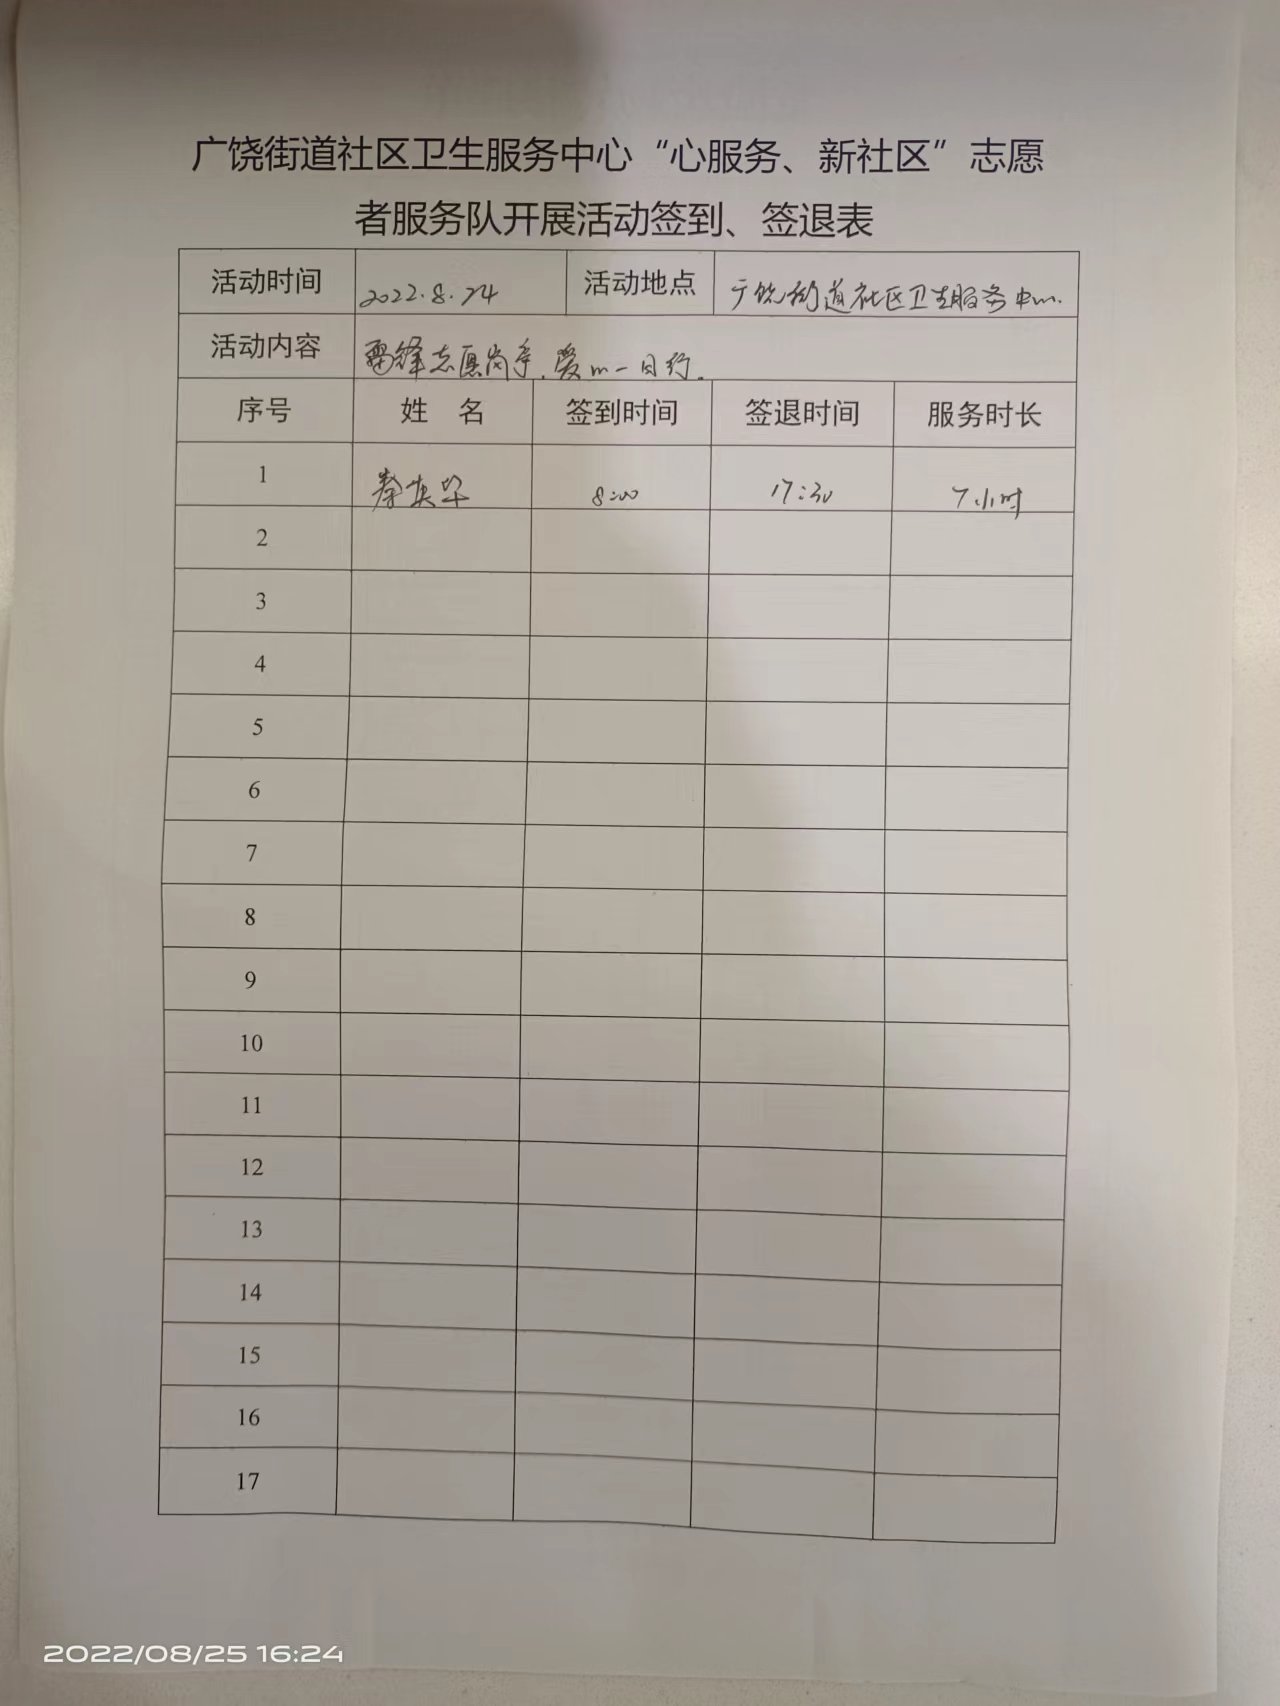 广饶街道社区卫生服务中心“心服务、新社区”志愿
者服务队开展活动签到、签退表
活动时间 2022.8.24 活动地点 广饶街道社区卫生服务中心.
活动内容 雷锋志愿岗 爱心一日行.
序号 姓 名 签到时间 签退时间 服务时长
1 英华 8:00 17:30 7小时
2
3
4
5
6
7
8
9
10
11
12
13
14
15
16
17
2022/08/25 16:24